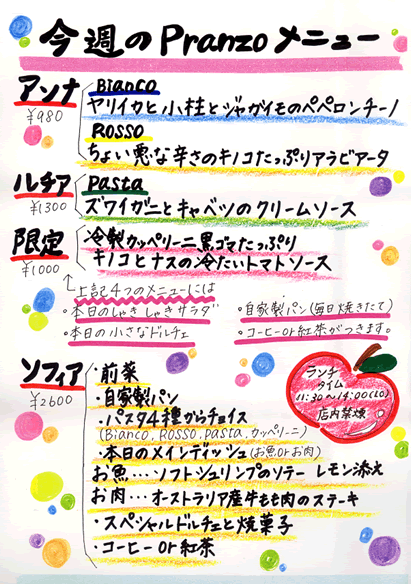 今週のPranzoメニュー
アンナ
¥980
Bianco
ヤリイカと小柱とジャガイモのペペロンチーノ
Rosso
ちょい悪な辛さのキノコたっぷりアラビアータ
ルチア
¥1300
Pasta
ズワイガニとキャベツのクリームソース
限定
¥1000
冷製カッペリーニ黒ゴマたっぷり
キノコとナスの冷たいトマトソース
上記4つのメニューには
・本日のしゃきしゃきサラダ
・自家製パン(毎日焼きたて)
・本日の小さなドルチェ
・コーヒーor紅茶がつきます。
ソフィア
¥2600
・前菜
・自家製パン
・パスタ4種からチョイス
(Bianco, Rosso, Pasta, カッペリーニ)
・本日のメインディッシュ(お魚orお肉)
お魚…ソフトシュリンプのソテー レモン添え
お肉…オーストラリア産牛もも肉のステーキ
・スペシャルドルチェと焼菓子
・コーヒーor紅茶
ランチ
タイム
11:30〜14:00(LO)
店内禁煙